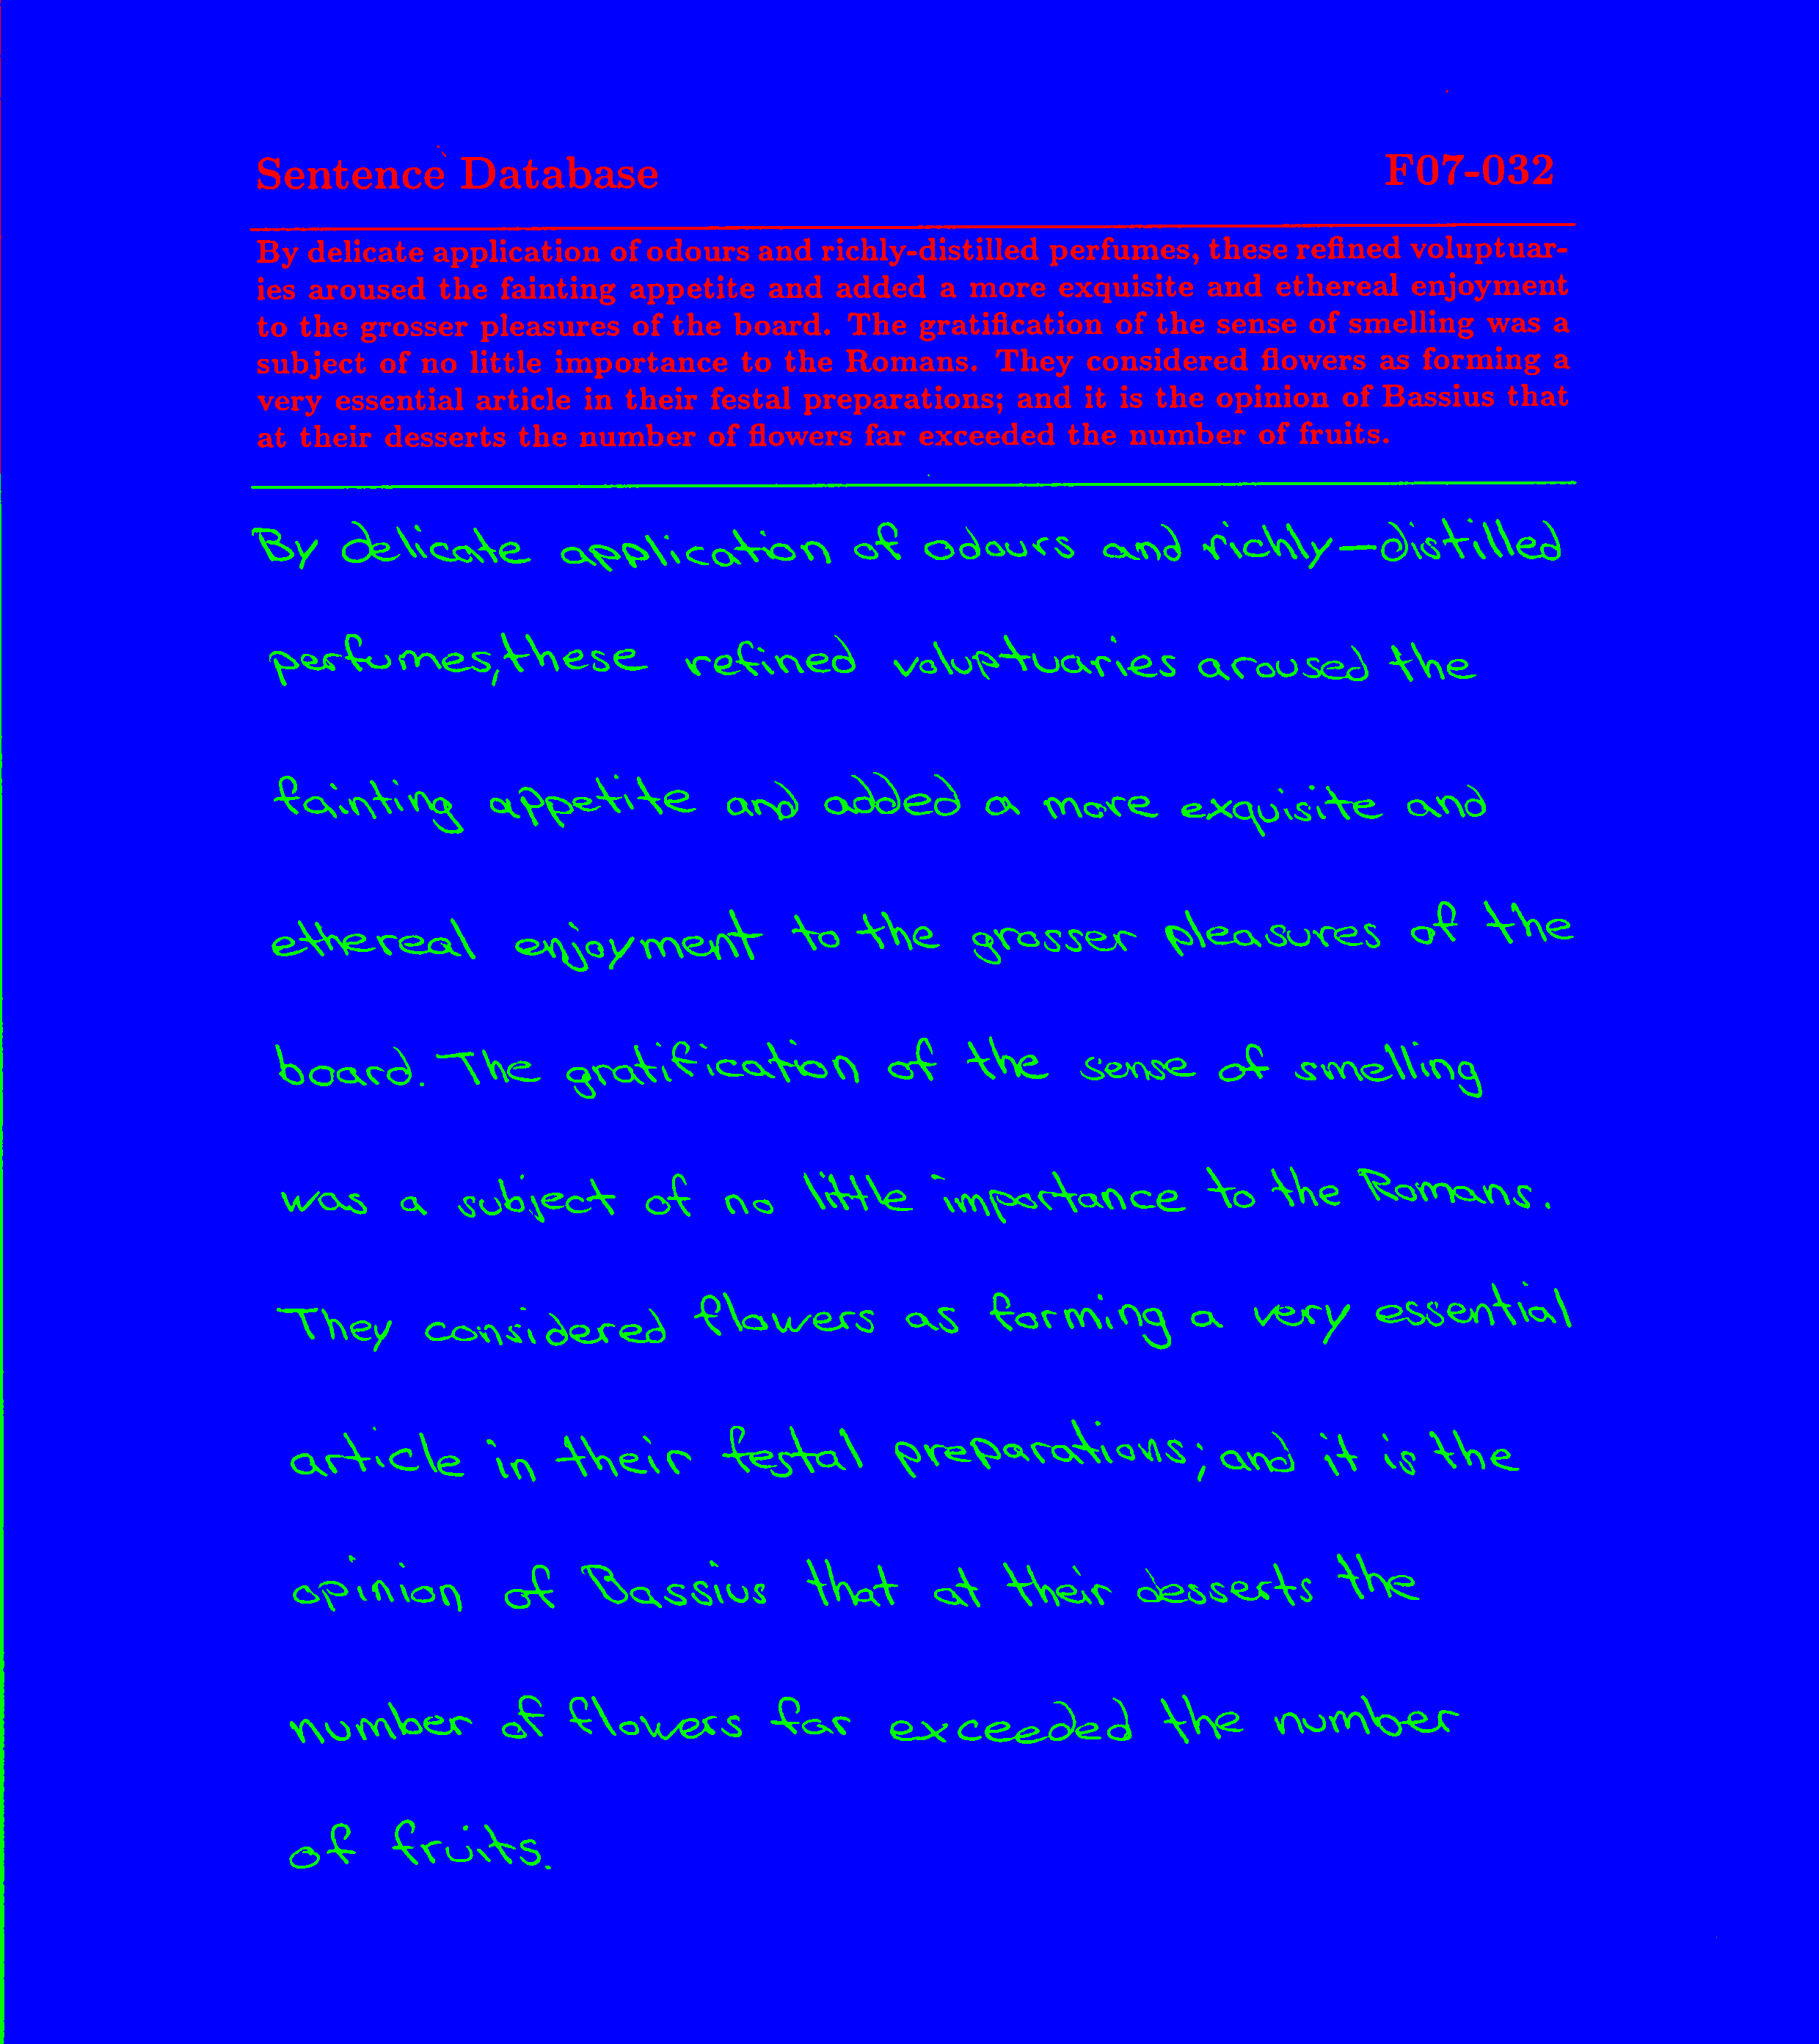 Sentence Database F07-032
By delicate application of odours and richly-distilled perfumes, these refined voluptuar-
ies aroused the fainting appetite and added a more exquisite and ethereal enjoyment
to the grosser pleasures of the board. The gratification of the sense of smelling was a
subject of no little importance to the Romans. They considered flowers as forming a
very essential article in their festal preparations; and it is the opinion of Bassius that
at their desserts the number of flowers far exceeded the number of fruits.
By delicate application of odours and richly-distilled
perfumes, these refined voluptuaries aroused the
fainting appetite and added a more exquisite and
ethereal enjoyment to the grosser pleasures of the
board. The gratification of the sense of smelling
was a subject of no little importance to the Romans.
They considered flowers as forming a very essential
article in their festal preparations; and it is the
opinion of Bassius that at their desserts the
number of flowers far exceeded the number
of fruits.